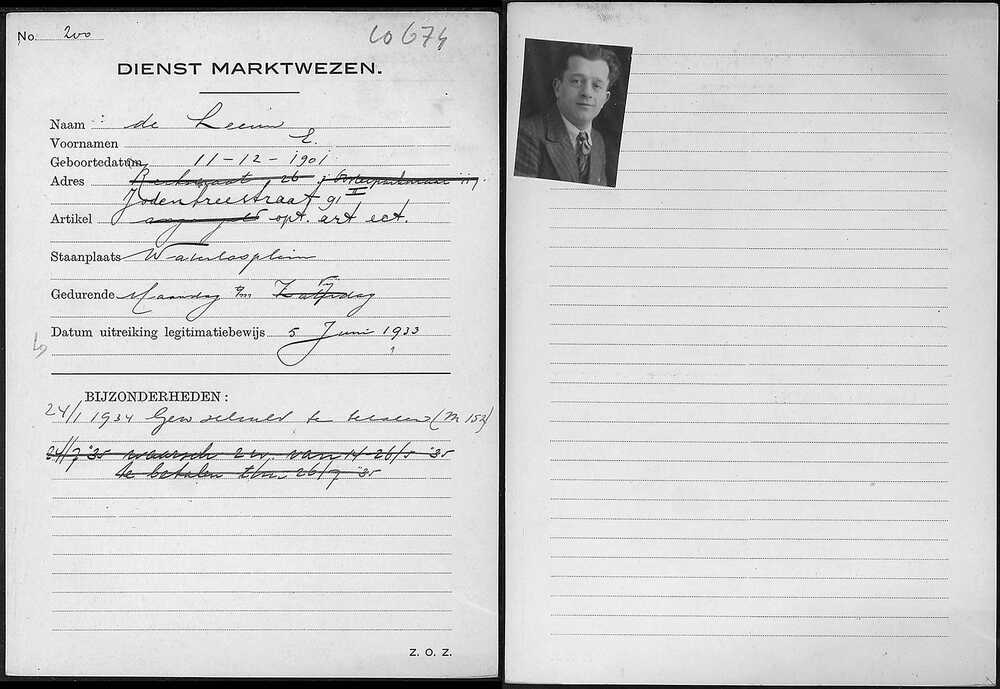 No. 200
Lo 674
DIENST MARKTWEZEN.
Naam : de Leeuw
Voornamen E.
Geboortedatum 11-12-1901
Adres 26
Jodenbreestraat 91 II
Artikel opt. art ect.
Staanplaats Waterlooplein
Gedurende Maandag t/m Zaterdag Vrijdag
Datum uitreiking legitimatiebewijs 5 Juni 1933
Lo
BIJZONDERHEDEN :
24/1 1934 Gew. schuld te betalen (M 153)
24/7 '35 waarsch 2 w. van 14-26/5 '35
te betalen t/m 26/7 '35
Z. O. Z.